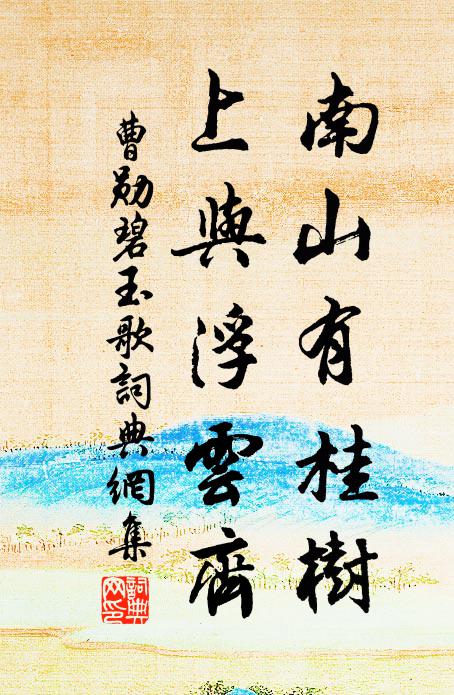 南山有桂樹
上與浮雲齊
曹勛碧玉歌詞典網集